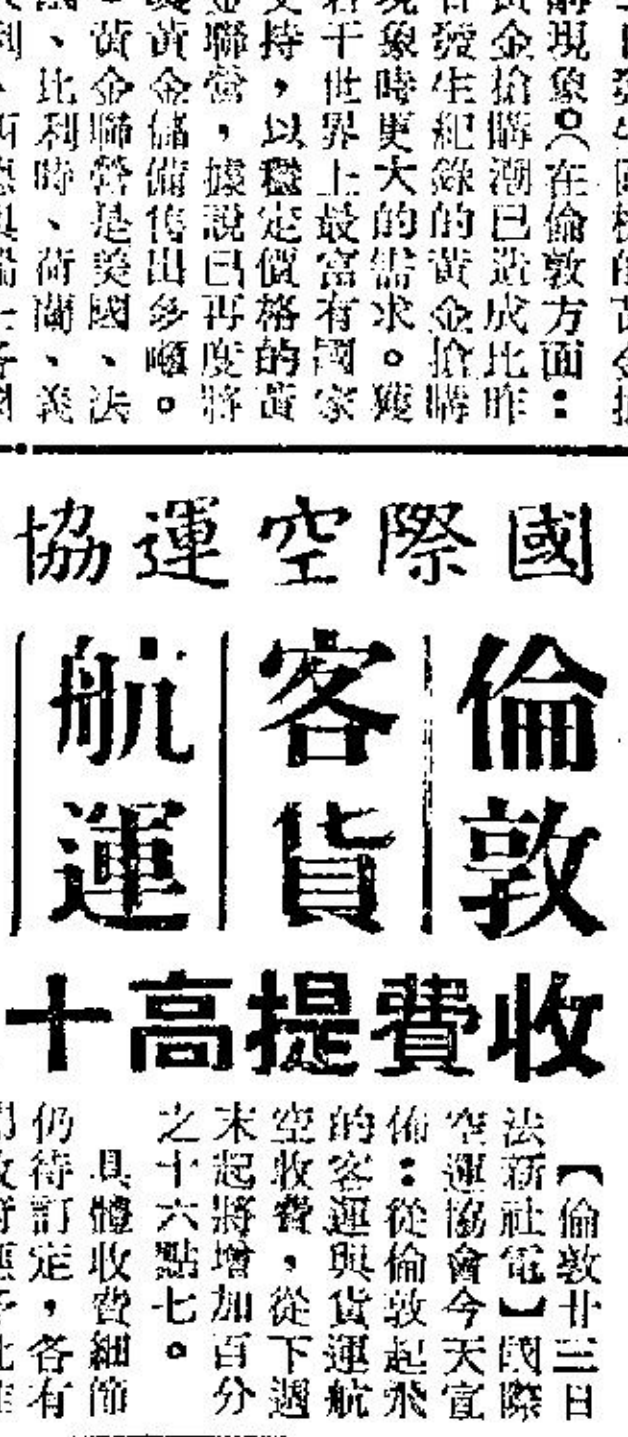 現象。（在倫敦方面：
金搶購潮已造成比昨
發生紀錄的黃金搶購
象時更大的需求。獲
干世界上最富有國家
持，以穩定價格的黃
聯營，據說已再度將
黃金儲備售出多噸。
黃金聯營是美國、法
、比利時、荷蘭、義
國際空運協
倫敦
客貨
航運
收費提高十
【倫敦廿三日
法新社電】國際
空運協會今天宣
佈：從倫敦起飛
的客運與貨運航
空收費，從下週
末起將增加百分
之十六點七。
具體收費細節
仍待訂定，各有